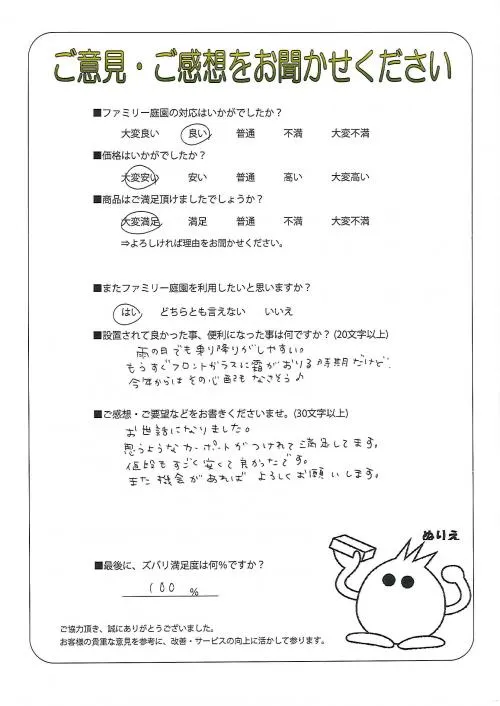 ご意見・ご感想をお聞かせください
■ファミリー庭園の対応はいかがでしたか？
大変良い 良い 普通 不満 大変不満
■価格はいかがでしたか？
大変安い 安い 普通 高い 大変高い
■商品はご満足頂けましたでしょうか？
大変満足 満足 普通 不満 大変不満
⇒よろしければ理由をお聞かせください。
■またファミリー庭園を利用したいと思いますか？
はい どちらとも言えない いいえ
■設置されて良かった事、便利になった事は何ですか？(20文字以上)
雨の日でも乗り降りがしやすい。
もうすぐフロントガラスに霜がおりる時期だけど、
今年からはその心配もなさそう♪
■ご感想・ご要望などをお書きくださいませ。(30文字以上)
お世話になりました。
思うようなカーポートがつけれて満足してます。
値段もすごく安くて良かったです。
また機会があればよろしくお願いします。
ぬりえ
■最後に、ズバリ満足度は何％ですか？
100 %
ご協力頂き、誠にありがとうございました。
お客様の貴重な意見を参考に、改善・サービスの向上に活かして参ります。